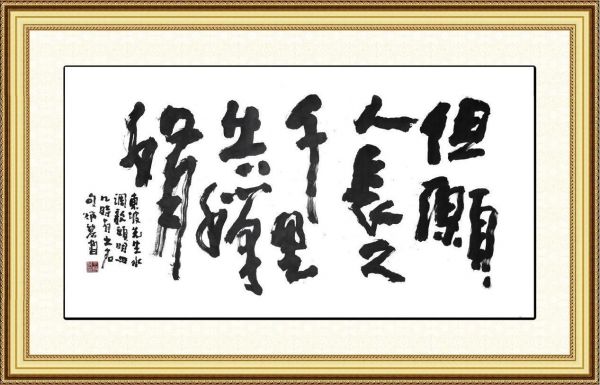 但願
人長久
千里
共嬋
娟
東坡先生水
調歌頭明月
几時有
書